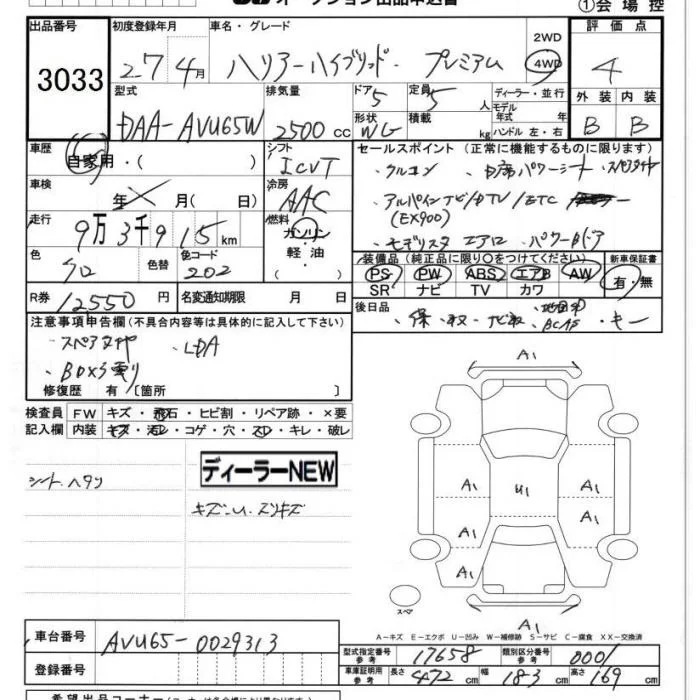 ①会場控
出品番号
3033
初度登録年月
27 4月
車名・グレード
ハリアーハイブリッド プレミアム
2WD
4WD
評価点
4
外装 内装
B B
型式
DAA-AVU65W
排気量
2500 cc
ドア
5
形状
WG
定員
5 人
積載
kg
ディーラー・並行
モデル
年式 年
ハンドル 左・右
車歴
自家用・( )
シフト
ICVT
セールスポイント (正常に機能するものに限ります)
・クルコン ・パワーシート ・スペアタイヤ
・アルパインナビ/DTV/ETC
(EX900)
・モデリスタ エアロ ・パワーBドア
車検
年 月( 日)
冷房
AAC
走行
9万3千915km
燃料
ガソリン
軽・油
( )
色
クロ
色替
色コード
202
装備品 (純正品に限り○をつけてください)
PS PW ABS エアB AW
SR ナビ TV カワ
新車保証書
有・無
R券
12550 円
名変通知期限 月 日
後日品
・保・取・ナビ取・・キー
注意事項申告欄(不具合内容等は具体的に記入して下さい)
・スペアタイヤ ・LDA
・BOX3
修復歴 有 [箇所 ]
検査員 FW キズ・飛石・ヒビ割・リペア跡・×要
記入欄 内装 キズ・汚レ・コゲ・穴・スレ・キレ・破レ
シートハタリ
ディーラーNEW
キズ・U・スリキズ
A1
A1
U1
A1
A1
A1
A1
A1
スペア
A－キズ E－エクボ U－凹み W－補修跡 S－サビ C－腐食 XX－交換済
車台番号
AVU65-0029313
登録番号
型式指定番号
参考
17658
類別区分番号
参考
0001
車庫証明用
参考
長さ 472 cm
幅 183 cm
高さ 169 cm